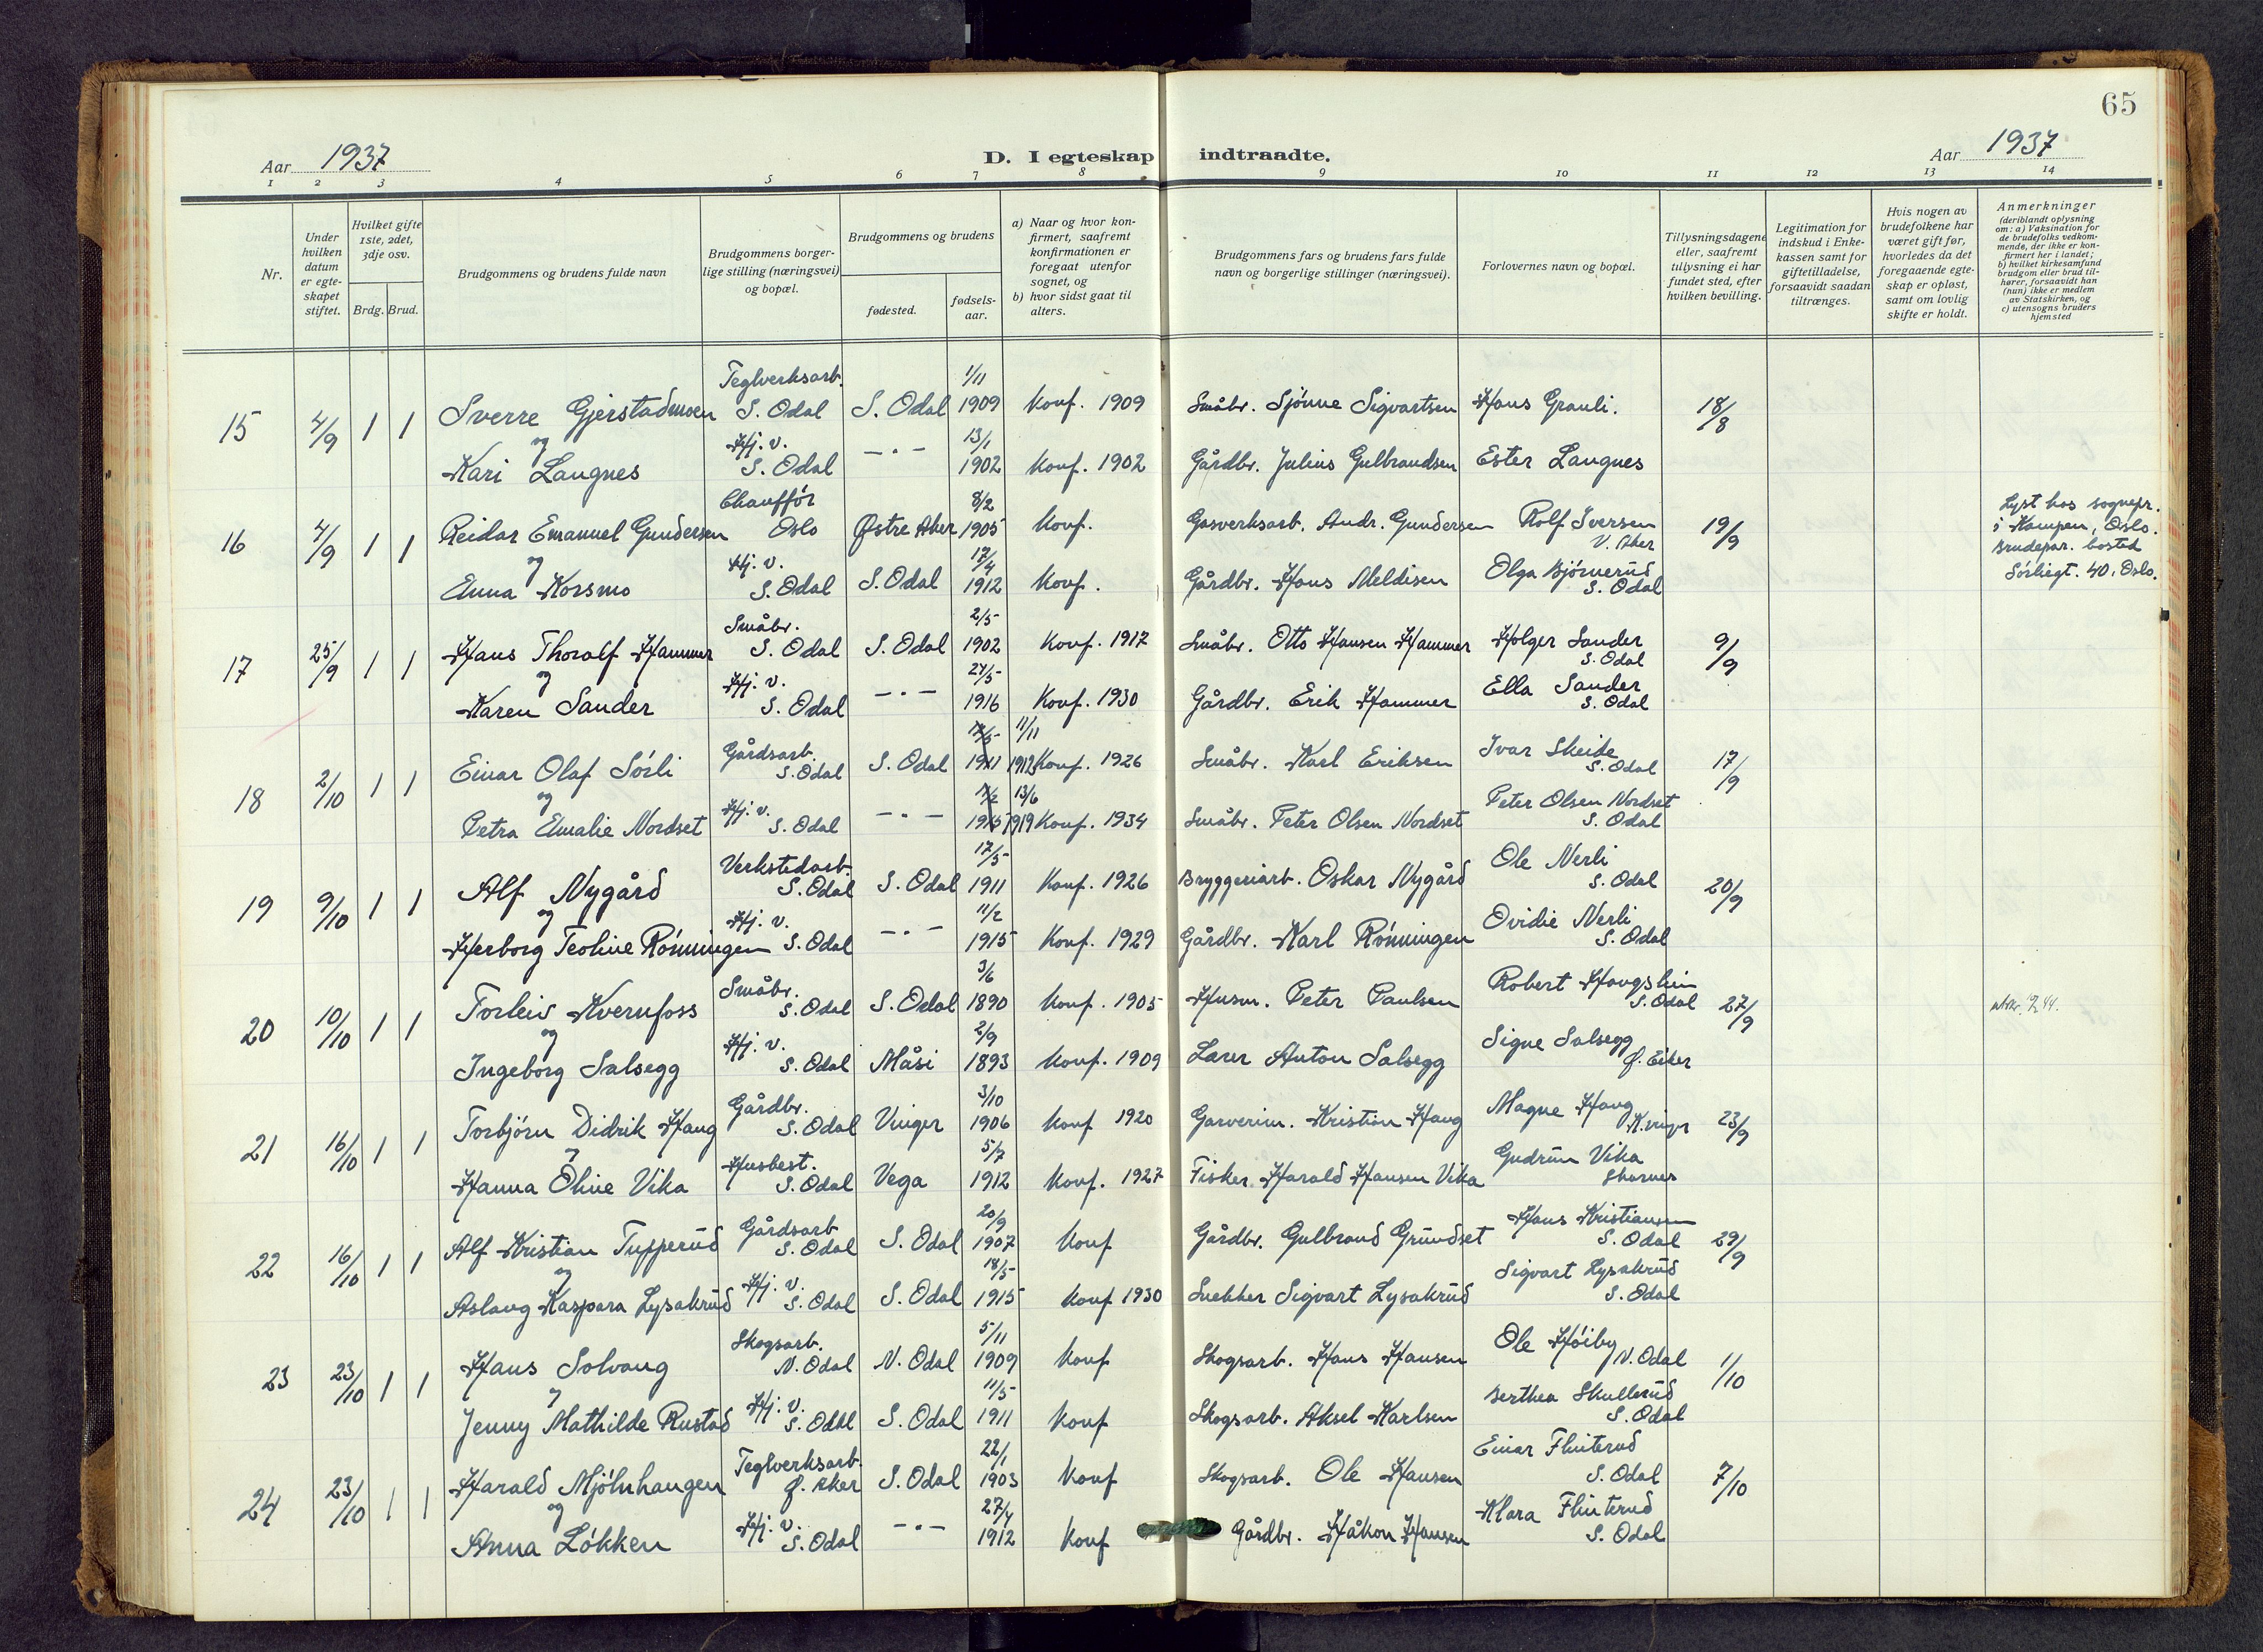 65
Aar 1937
D. I egteskap indtraadte.
Aar 1937
1 2 3 4 5 6 7 8 9 10 11 12 13 14
Nr.
Under hvilken datum er egteskapet stiftet.
Hvilket gifte 1ste, 2det, 3dje osv.
Brdg. Brud.
Brudgommens og brudens fulde navn
Brudgommens borgerlige stilling (næringsvei) og bopæl.
Brudgommens og brudens
fødested.
fødselsaar.
a) Naar og hvor konfirmert, saafremt konfirmationen er foregaat utenfor sognet, og
b) hvor sidst gaat til alters.
Brudgommens fars og brudens fars fulde navn og borgerlige stillinger (næringsvei).
Forlovernes navn og bopæl.
Tillysningsdagene eller, saafremt tillysning ei har fundet sted, efter hvilken bevilling.
Legitimation for indskud i Enkekassen samt for giftetilladelse, forsaavidt saadan tiltrænges.
Hvis nogen av brudefolkene har været gift før, hvorledes da det foregaaende egteskap er opløst, samt om lovlig skifte er holdt.
Anmerkninger
(deriblandt oplysning om: a) Vaksination for de brudefolks vedkommende, der ikke er konfirmert her i landet;
b) hvilket kirkesamfund brudgom eller brud tilhører, forsaavidt han (hun) ikke er medlem av Statskirken, og
c) utensogns bruders hjemsted
15 4/9 1 1 Sverre Gjerstadmoen Teglverksarb. S. Odal S. Odal 1/11 1909 Konf. 1909 Småbr. Sjønne Sigvartsen Hans Granli. 18/8
og
Kari Langnes Hj. v. S. Odal -"- 13/1 1902 Konf. 1902 Gårdbr. Julius Gulbrandsen Ester Langnes
16 4/9 1 1 Reidar Emanuel Gundersen Chauffør Oslo Østre Aker 8/2 1905 Konf. Gasverksarb. Andr. Gundersen Rolf Iversen V. Aker 19/9 Lyst hos sognepr. i Kampen, Oslo. Brudepar. bosted Sørligt. 40, Oslo.
og
Enna Korsmo Hj. v. S. Odal S. Odal 17/4 1912 Konf. Gårdbr. Hans Meldisen Olga Bjørnerud S. Odal
17 25/9 1 1 Hans Thoralf Hammer Småbr. S. Odal S. Odal 2/5 1902 Konf. 1917 Småbr. Otto Hansen Hammer Holger Sander S. Odal 9/9
og
Karen Sander Hj. v. S. Odal -"- 27/5 1916 Konf. 1930 Gårdbr. Erik Hammer Ella Sander S. Odal
18 2/10 1 1 Einar Olaf Sørli Gårdsarb. S. Odal S. Odal 1911 11/11 1912 Konf. 1926 Småbr. Karl Eriksen Ivar Skeide S. Odal 17/9
og
Petra Emalie Nordset Hj. v. S. Odal -"- 1915 13/6 1919 Konf. 1934 Småbr. Peter Olsen Nordset Peter Olsen Nordset S. Odal
19 9/10 1 1 Alf Nygård Verkstedarb. S. Odal S. Odal 17/5 1911 Konf. 1926 Bryggeriarb. Oskar Nygård Ole Nerli S. Odal 20/9
og
Herborg Teoline Rønningen Hj. v. S. Odal -"- 11/2 1915 Konf. 1929 Gårdbr. Karl Rønningen Ovidie Nerli S. Odal
20 10/10 1 1 Torleiv Kvernfoss Småbr. S. Odal S. Odal 3/6 1890 Konf. 1905 Husm. Peter Paulsen Robert Haugslien S. Odal 27/9
og
Ingeborg Salsegg Hj. v. S. Odal Måsi 2/9 1893 Konf. 1909 Lærer Anton Salsegg Signe Salsegg Ø. Eiker
21 16/10 1 1 Torbjørn Didrik Haug Gårdbr. S. Odal Vinger 3/10 1906 Konf 1920 Garverim. Kristian Haug Magne Haug K.vinger 23/9
og
Hanna Oline Vika Husbest. S. Odal Vega 5/7 1912 Konf. 1927 Fisker Harald Hansen Vika Gudrun Vika Skarnes
22 16/10 1 1 Alf Kristian Tupperud Gårdsarb S. Odal S. Odal 20/9 1907 Konf Gårdbr. Gulbrand Grundset Hans Kristiansen S. Odal 29/9
og
Aslaug Kaspara Lysakrud Hj. v. S. Odal S. Odal 18/5 1915 Konf 1930 Snekker Sigvart Lysakrud Sigvart Lysakrud S. Odal
23 23/10 1 1 Hans Solvang Skogsarb. N. Odal N. Odal 5/11 1909 Konf Skogsarb. Hans Hansen Ole Høiby N. Odal 1/10
og
Jenny Mathilde Rustad Hj. v. S. Odal S. Odal 11/5 1911 Konf Skogsarb. Aksel Karlsen Berthea Skullerud S. Odal
24 23/10 1 1 Harald Mjølnhaugen Teglverksarb. Ø. Aker S. Odal 22/1 1903 Konf Skogsarb. Ole Hansen Einar Flinterud S. Odal 7/10
og
Anna Løkken Hj. v. S. Odal -"- 27/4 1912 Konf Gårdbr. Håkon Hansen Klara Flinterud S. Odal